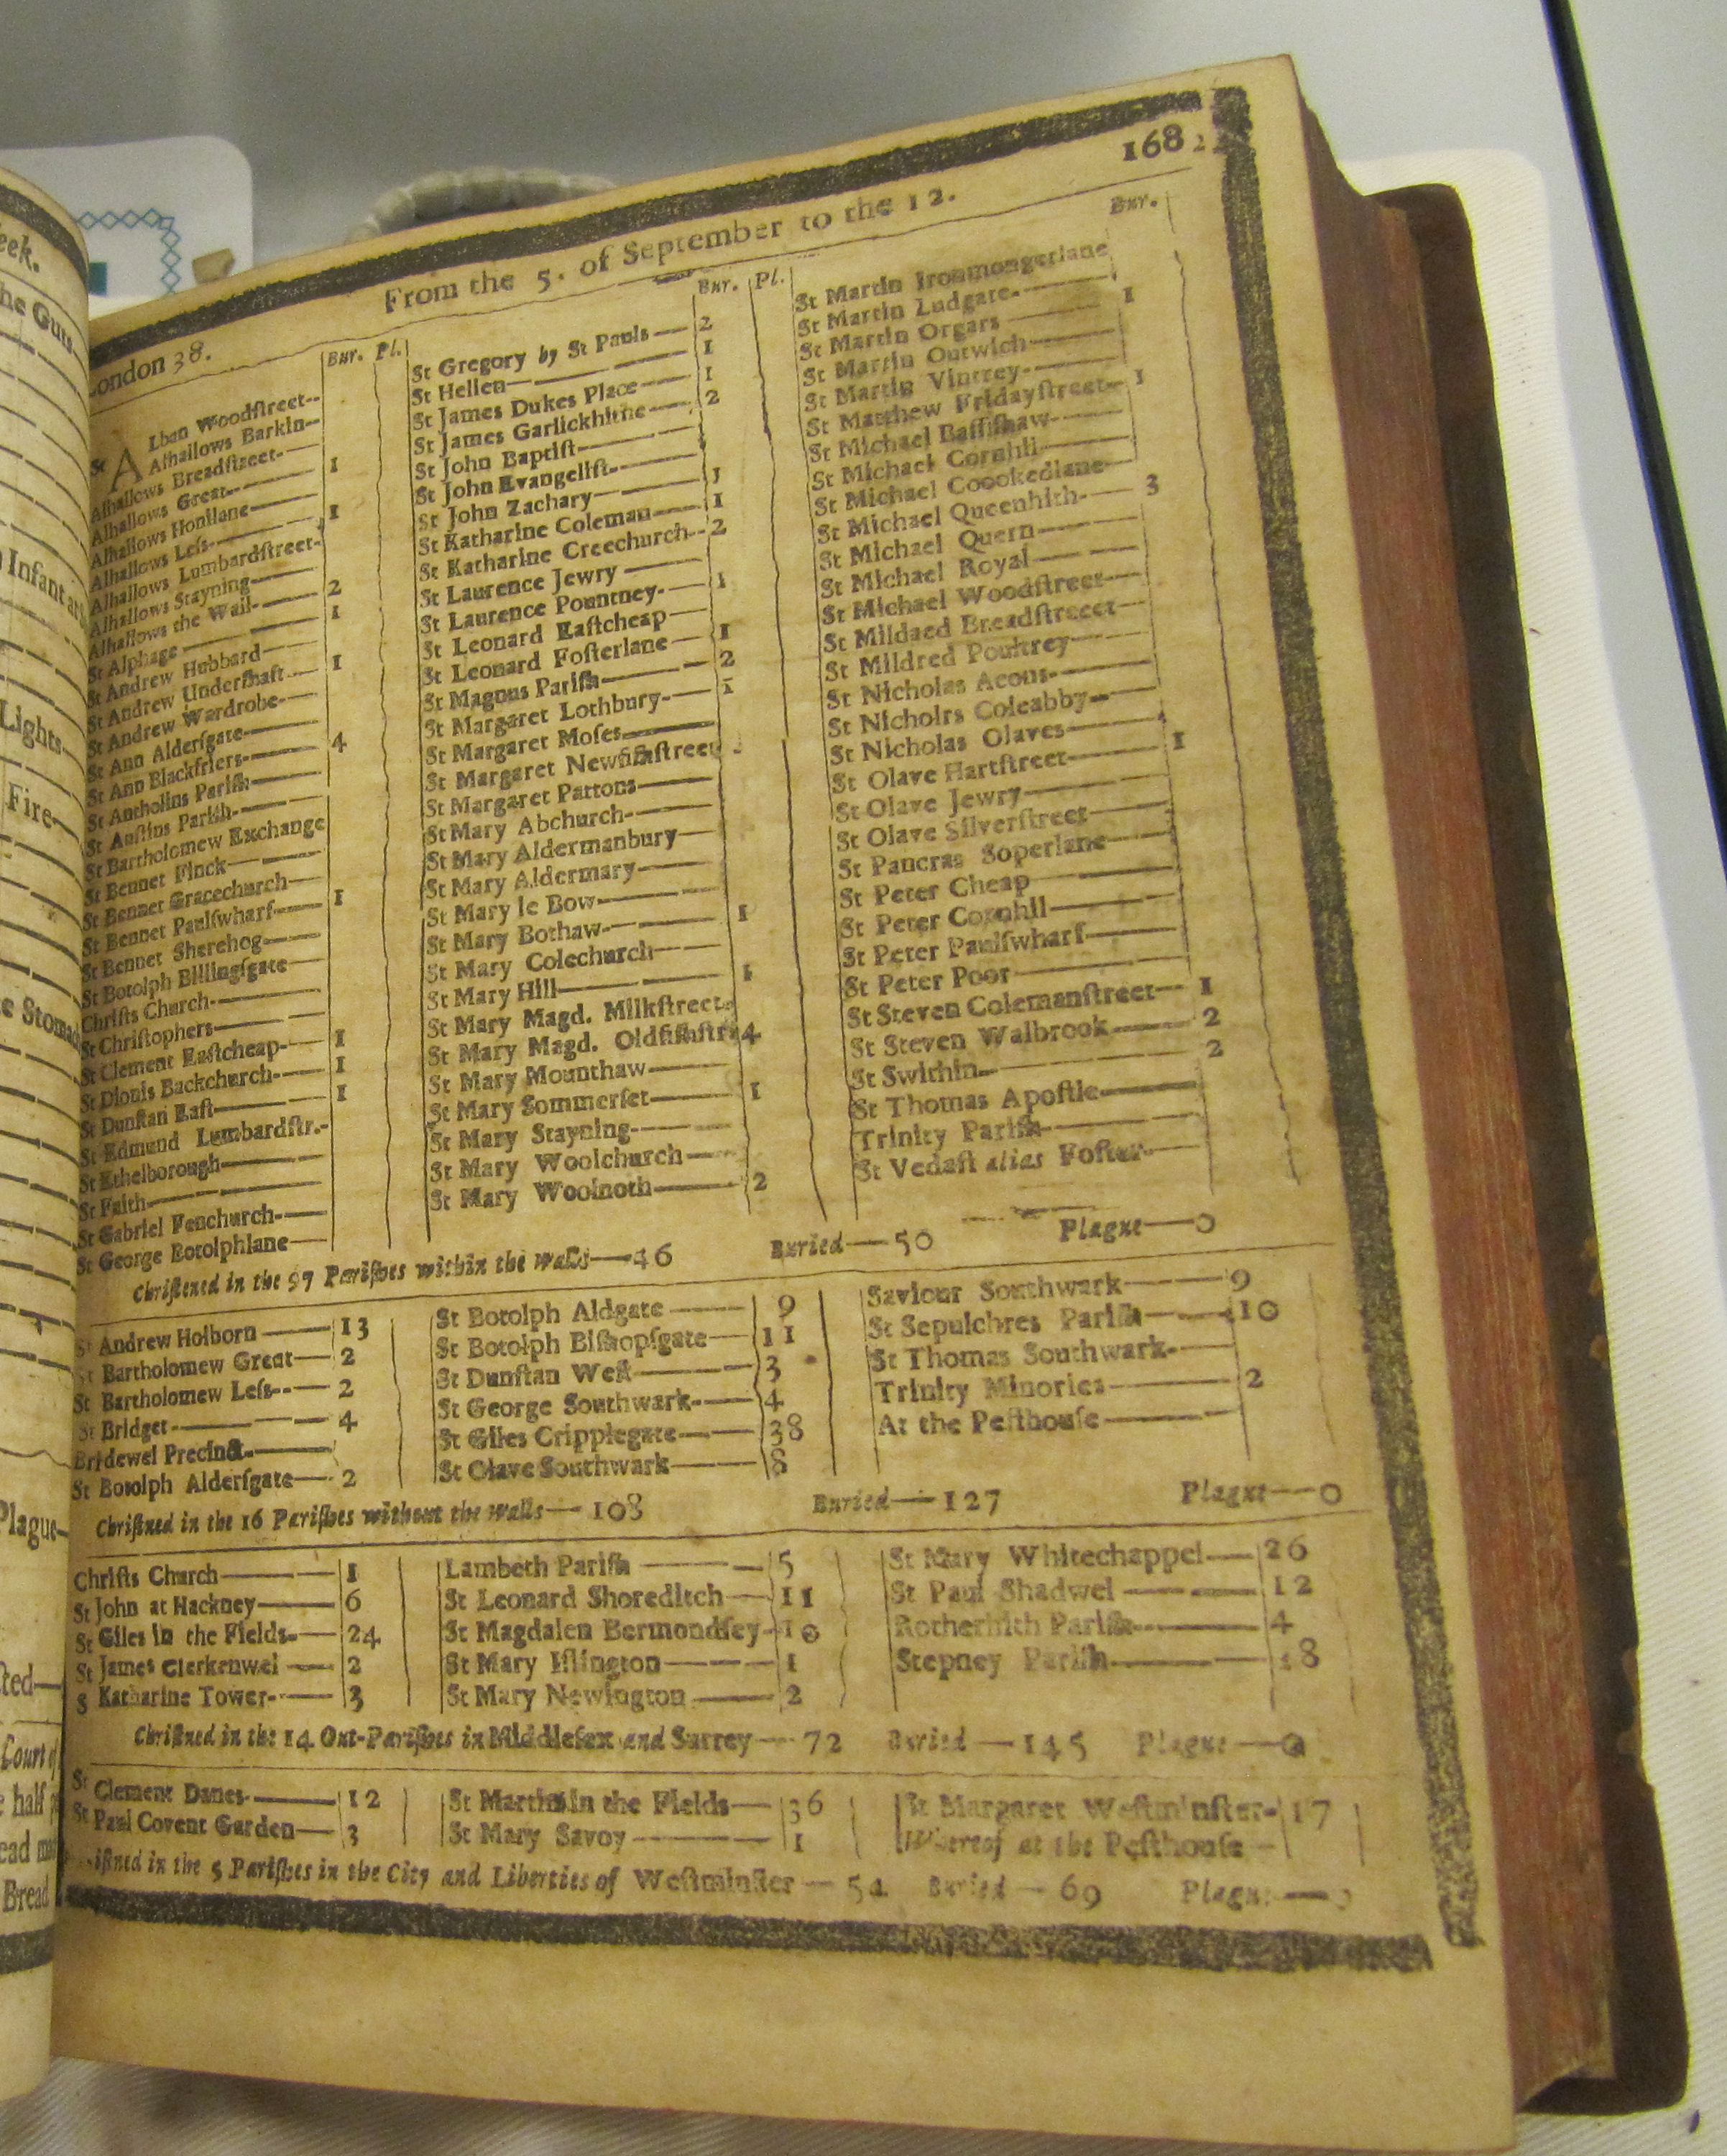 eek.
he Guts
Infant
Lights
Fire
e Stomach
Plague
ted
Court of
half
ead
Bread
1682
From the 5. of September to the 12.
London 38.
Bur. Pl.
St ALban Woodstreet
Alhallows Barkin
Alhallows Breadstreet
Alhallows Great 1
Alhallows Honilane
Alhallows Less 1
Alhallows Lumbardstreet
Alhallows Stayning
Alhallows the Wall 2
St Alphage 1
St Andrew Hubbard
St Andrew Undershaft 1
St Andrew Wardrobe
St Ann Aldersgate
St Ann Blackfriers 4
St Antholins Parish
St Austins Parish
St Bartholomew Exchange
St Bennet Finck
St Bennet Gracechurch
St Bennet Paulswharf 1
St Bennet Sherehog
St Botolph Billingsgate
Christs Church
St Christophers
St Clement Eastcheap 1
St Dionis Backchurch 1
St Dunstan East 1
St Edmund Lumbardstr.
St Ethelborough
St Faith
St Gabriel Fenchurch
St George Botolphlane
Bur. Pl.
St Gregory by St Pauls 2
St Hellen 1
St James Dukes Place 1
St James Garlickhithe 2
St John Baptist
St John Evangelist
St John Zachary 1
St Katharine Coleman 1
St Katharine Creechurch 2
St Laurence Jewry
St Laurence Pountney 1
St Leonard Eastcheap
St Leonard Fosterlane 1
St Magnus Parish 2
St Margaret Lothbury 1
St Margaret Moses
St Margaret Newfishstreet
St Margaret Pattons
St Mary Abchurch
St Mary Aldermanbury
St Mary Aldermary
St Mary le Bow
St Mary Bothaw 1
St Mary Colechurch
St Mary Hill 1
St Mary Magd. Milkstreet
St Mary Magd. Oldfishstr 4
St Mary Mounthaw
St Mary Sommerset 1
St Mary Stayning
St Mary Woolchurch
St Mary Woolnoth 2
Bur.
St Martin Ironmongerlane
St Martin Ludgate 1
St Martin Orgars
St Martin Outwich
St Martin Vintrey
St Matthew Fridaystreet 1
St Michael Bassishaw
St Michael Cornhil
St Michael Coookedlane
St Michael Queenhith 3
St Michael Quern
St Michael Royal
St Michael Woodstreet
St Mildaed Breadstreeet
St Mildred Poultrey
St Nicholas Acons
St Nicholrs Coleabby
St Nicholas Olaves
St Olave Hartstreet 1
St Olave Jewry
St Olave Silverstreet
St Pancras Soperlane
St Peter Cheap
St Peter Cornhil
St Peter Paulswharf
St Peter Poor
St Steven Colemanstreet 1
St Steven Walbrook 2
St Swithin 2
St Thomas Apostle
Trinity Parish
St Vedast alias Foster
Christened in the 97 Parishes within the walls—46 Buried—50 Plague—0
St Andrew Holborn 13
St Bartholomew Great 2
St Bartholomew Less 2
St Bridget 4
Bridewel Precinct
St Botolph Aldersgate 2
St Botolph Aldgate 9
St Botolph Bishopsgate 11
St Dunstan West 3
St George Southwark 4
St Giles Cripplegate 38
St Olave Southwark 8
Saviour Southwark 9
St Sepulchres Parish 10
St Thomas Southwark
Trinity Minories 2
At the Pesthouse
Christned in the 16 Parishes without the walls—108 Buried—127 Plague—0
Christs Church 1
St John at Hackney 6
St Giles in the Fields 24
St James Clerkenwel 2
S Katharine Tower 3
Lambeth Parish 5
St Leonard Shoreditch 11
St Magdalen Bermondsey 10
St Mary Islington 1
St Mary Newington 2
St Mary Whitechappel 26
St Paul Shadwel 12
Rotherhith Parish 4
Stepney Parish 38
Christned in the 14 Out-Parishes in Middlesex and Surrey—72 Buried—145 Plague—0
St Clement Danes 12
St Paul Covent Garden 3
St Martins in the Fields 36
St Mary Savoy 1
St Margaret Westminster 17
Whereof at the Pesthouse
istned in the 5 Parishes in the City and Liberties of Westminster—54 Buried—69 Plague—0